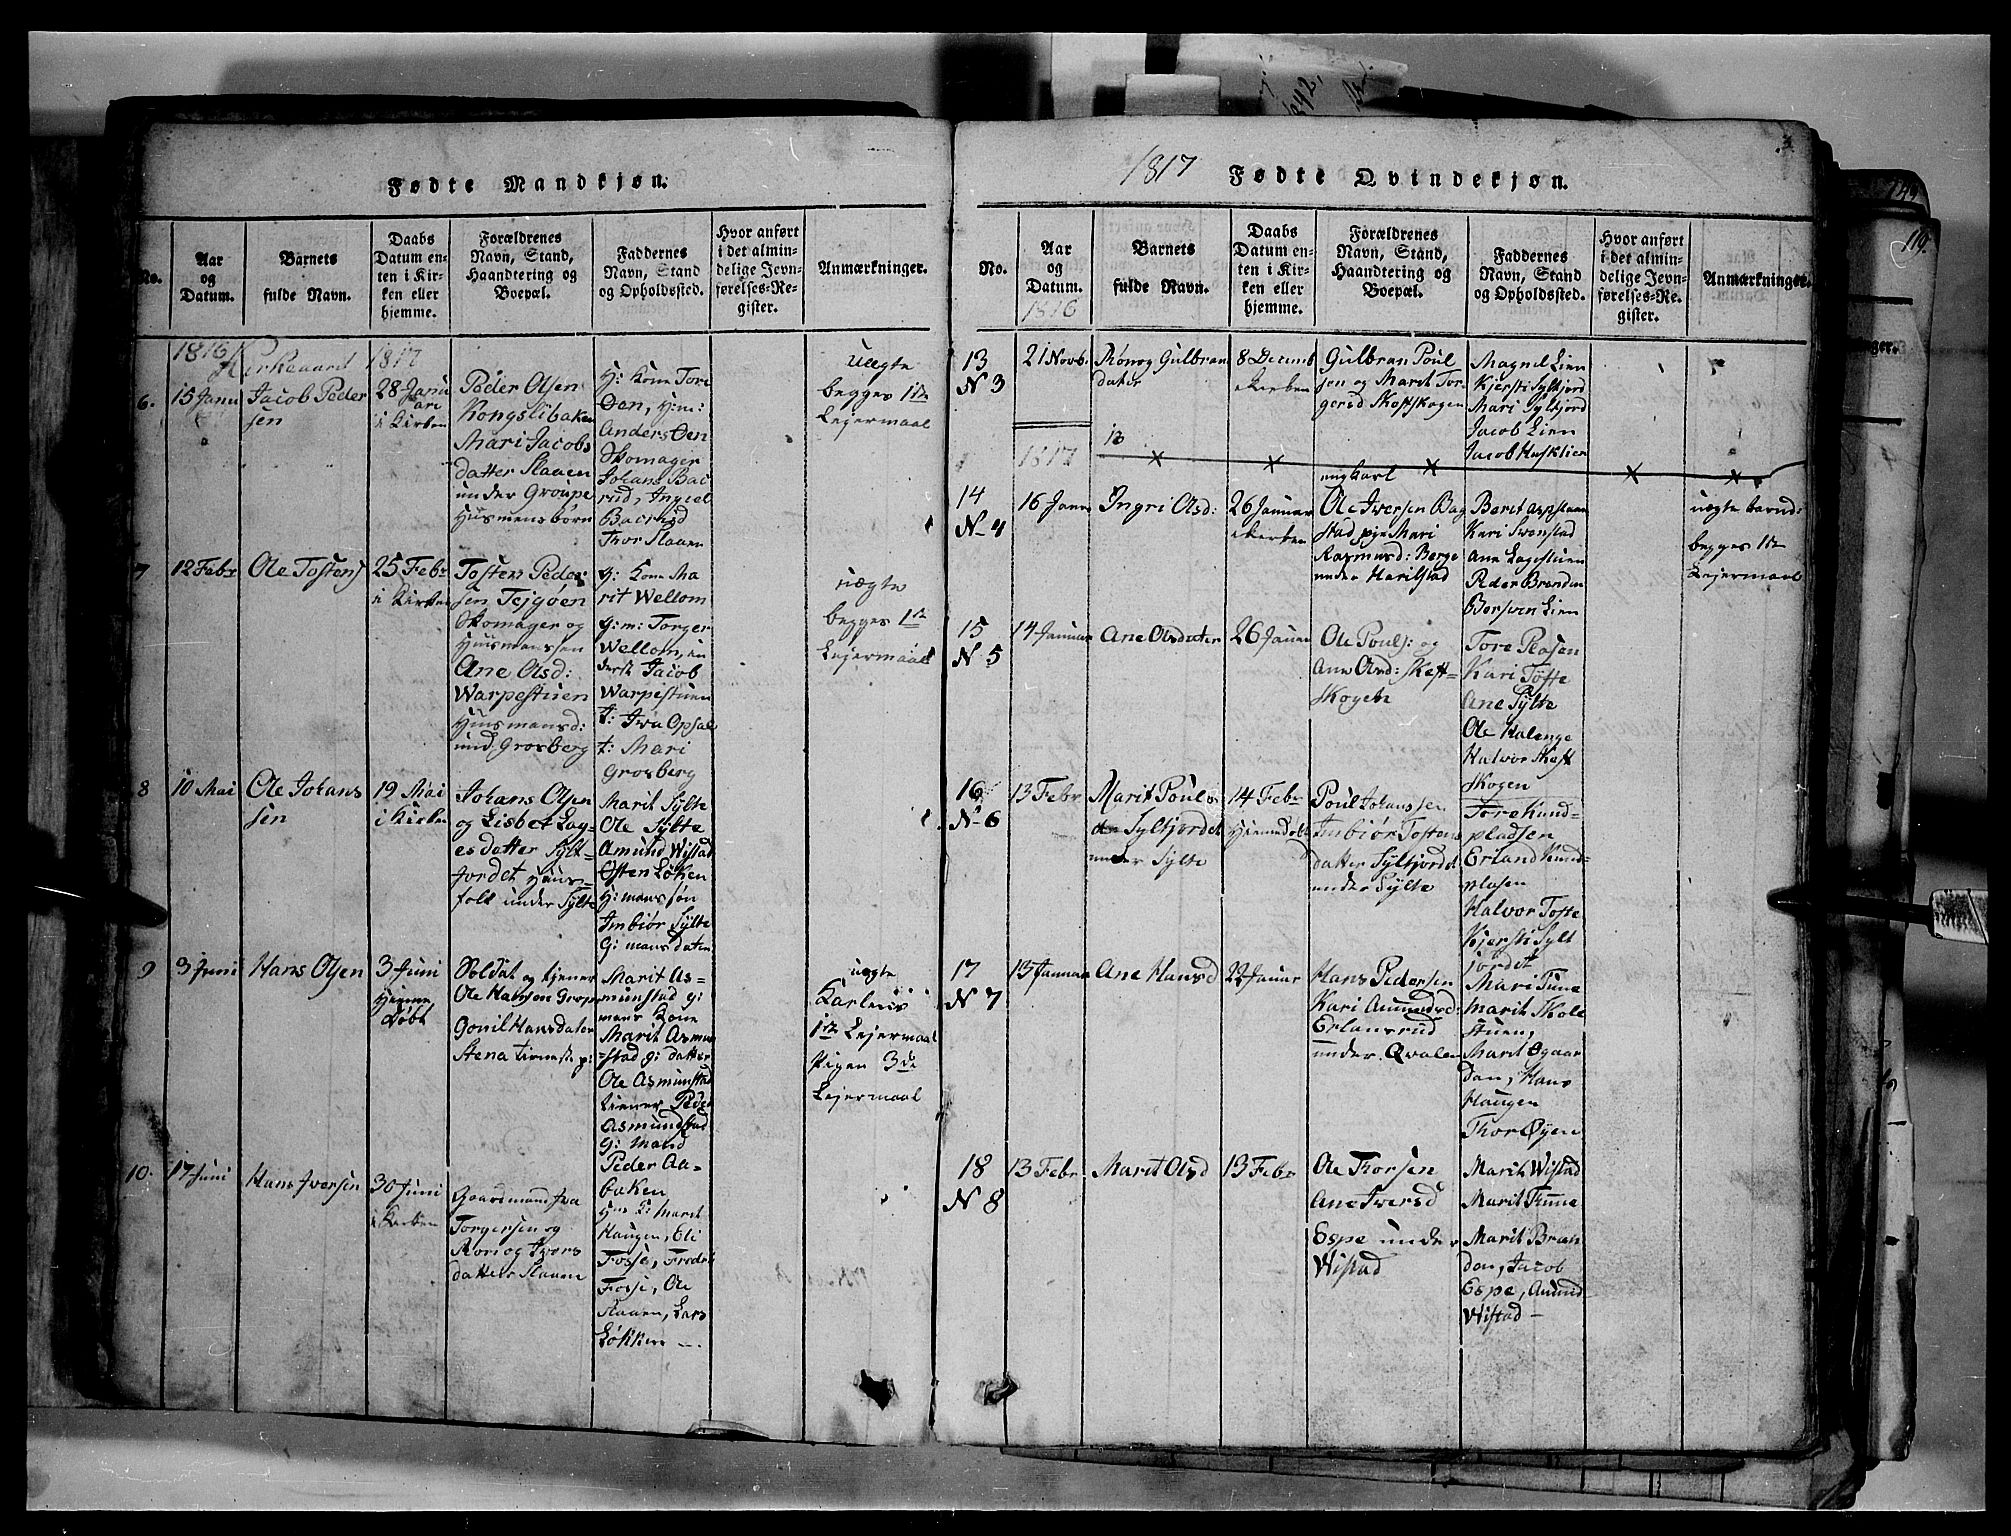 Fødte Mandkjøn.
No.
Aar og Datum.
Barnets fulde Navn.
Daabs Datum enten i Kirken eller hjemme.
Forældrenes Navn, Stand, Haandtering og Boepæl.
Faddernes Navn, Stand og Opholdssted.
Hvor anført i det almindelige Jevnførelses-Register.
Anmærkninger.
1816
1817
6.
15 Janu
Jacob Peder
sen
28 Janu
ari
i Kirken
Peder Olsen
Kongslibaken
Mari Jacobs
datter Slaaen
under Groupe
Husmensbørn
H: Kone Tore
Øen, H:m:
Anders Øen
Skomager
Johans Bac
rud, Ingiel
Bacrud
Thor Slaaen
uægte
begges 1te
Lejermaal
7
12 Febr
Ole Tostens
25 Febr
i Kirken
Tosten Peder
sen Tejgøen
Skomager og
Huusmanssen
Ane Olsd:
Warpestuen
Huusmansd:
und, Grosberg
g: Kone Ma
rit Wellom
g:m: Torger
Wellom, en
derst Jacob
Warpestuen
t: Iwa Opsal
t: Mari
Grosberg
uægte
begges 1te
Lejermaal
8
10 Mai
Ole Johans
sen
19 Mai
i Kirken
Johans Olsen
og Lisbet Lag
esdatter Sylt=
jordet Huus=
folk under Sylte
Marit Sylte
Ole Sylte
Amund Wistad
Østen Løken
H: mans søn
Imbiør Sylte
G: mans daten
9
3 Juni
Hans Olsen
3 Juni
Hjemme
døbt
Soldat og tjener
Ole Hansen Grop
Gonil Hansdater
Stena tieneste p:
Marit As=
munstad g:
mans Kone
Marit Asmun
=stad g: datter
Ole Asmunstad
tiener Peder
Asmundstad
G: Mand
Peder Aa=
baken
uægte
Karlens
1te Lejermaal
Pigen 3de
Lejermaal
10.
17 Juni
Hans Iversen
30 Juni
i Kirken
Gaardmand Iva
Torgersen og
Ronog Ivers
datter Slaaen
Hm K: Marit
Haugen, Eli
Fosse, Fredri
Fosse, Ole
Slaaen, Lars
Løkken —
1817 Fødte Qvindekjøn.
No.
Aar og Datum.
1816
Barnets fulde Navn.
Daabs Datum enten i Kirken eller hjemme.
Forældrenes Navn, Stand, Haandtering og Boepæl.
Faddernes Navn, Stand og Opholdssted.
Hvor anført i det almindelige Jevnførelses-Register.
Anmærkninger.
13
N 3
21 Novb.
Rønog Gulbran
dater
8 Decemb
i Kerken
Gulbran Poul
sen og Marit Tor
gersd Skøtskogen
Magnil Lien
Kjersti Syltjord
Mari Syltjord
Jacob Lien
Jacob Husklier
1817
14
N 4
16 Janu
Ingri Olsd:
26 Januar
i Kerken
ungkarl
Ole Iversen Bag
stad, pige Mari
Rasmusd: Berge
under Harilstad
Berit Aspslaan
Kari Swenstad
Ane Lagestuen
Peder Branden
Børsven Lien
uægte barnd:
begges 1te
Lejermaal
15
N 5
14 Januar
Ane Olsdater
26 Januar
Ole Pouls: og
Ane Olsd: Skøtt=
skogen
Tore Plasen
Kari Tofte
Ane Sylte
Ole Kalenge
Halvor Skøtt
skogen
16
N 6
13 Febr
Marit Pouls
Syltjordet
under Sylte
14 Febr
Hiemedobt
Poul Johanssen
Imbiør Tostens
datter Syltjordet
under Sylte
Tore Kund=
pladsen
Erland Kund=
plasen
Halvor Tofte
Kjersti Sylt
jordet
17
N 7
13 Januar
Ane Hansd
22 Januar
Hans Pedersen
Kari Amundsd:
Erlansrud
under Qvalen
Mari Tune
Marit Skole
stuen,
Marit Øgaar
den, Hans
Haugen
Thor Øyen
18
N 8
13 Febr
Marit Olsd
13 Febr
Ole Thorsen
Ane Iversd
Espe under
Wistad
Marit Wistad
Marit Tune
Marit Bran
den, Jacob
Espe, Amund
Wistad —
119.